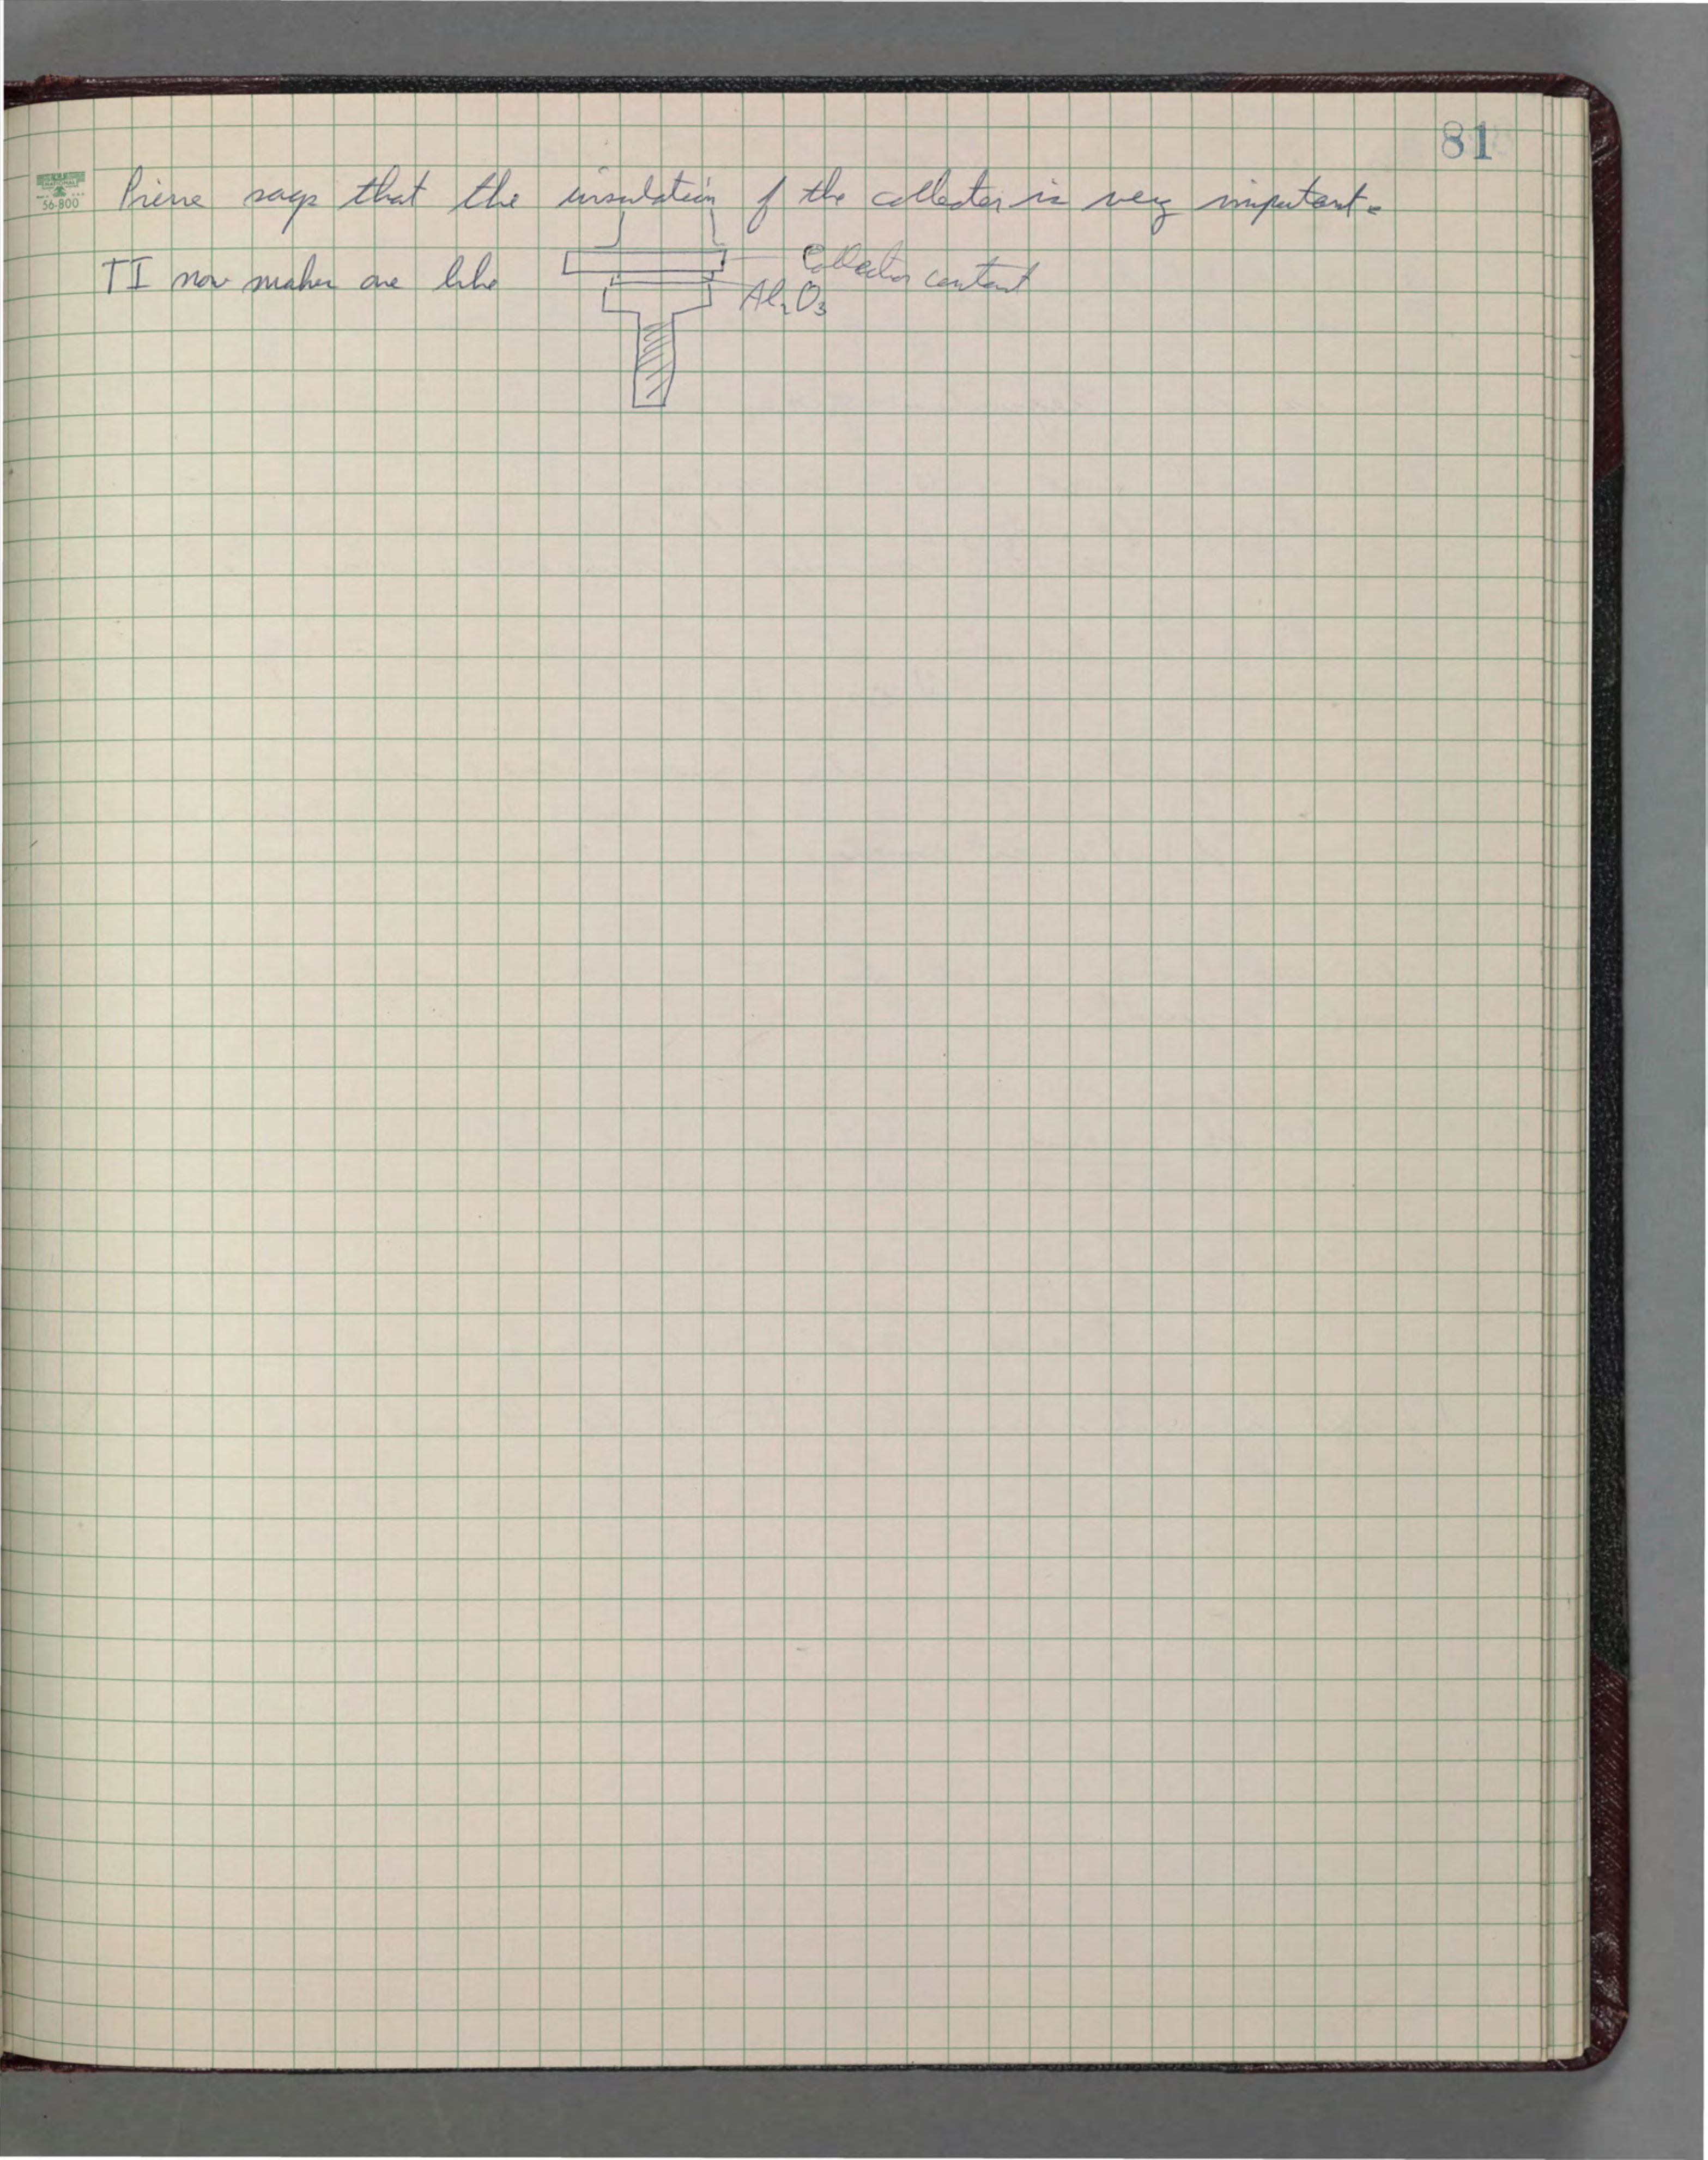 81
NATIONAL
56-800
Pierre says that the insulation of the collector is very important.
TI now makes one like
Collector contact
Al2O3